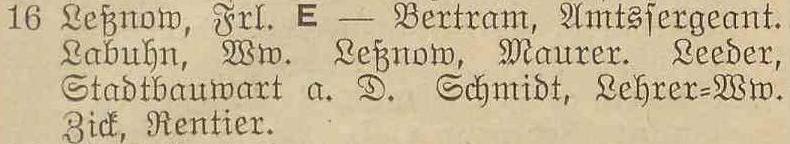 16 Leßnow, Frl. E — Bertram, Amtsſergeant.
Labuhn, Ww. Leßnow, Maurer. Leeder,
Stadtbauwart a. D. Schmidt, Lehrer⸗Ww.
Zick, Rentier.